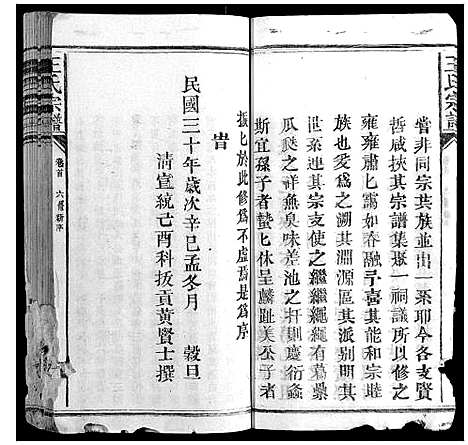 王氏宗譜
嘗非同宗共族並出一系耶今各支賢
哲咸挾其宗譜集聚一祠議所以修之
雍雍肅匕靄如春融予喜其能和宗睦
族也爰為之溯其淵源區其派别明其
世系連其宗支使之繼繼繩繩有葛藟
瓜瓞之祥無臭味差池之杆則慶衍螽
斯宜孫子者蟄匕休呈麟趾美公子者
振匕於此修為不虛焉是為序
旹
民國三十年歲次辛巳孟冬月　穀旦
清宣統己酉科拔貢黃賢士撰
王氏宗譜
卷首　六修新序